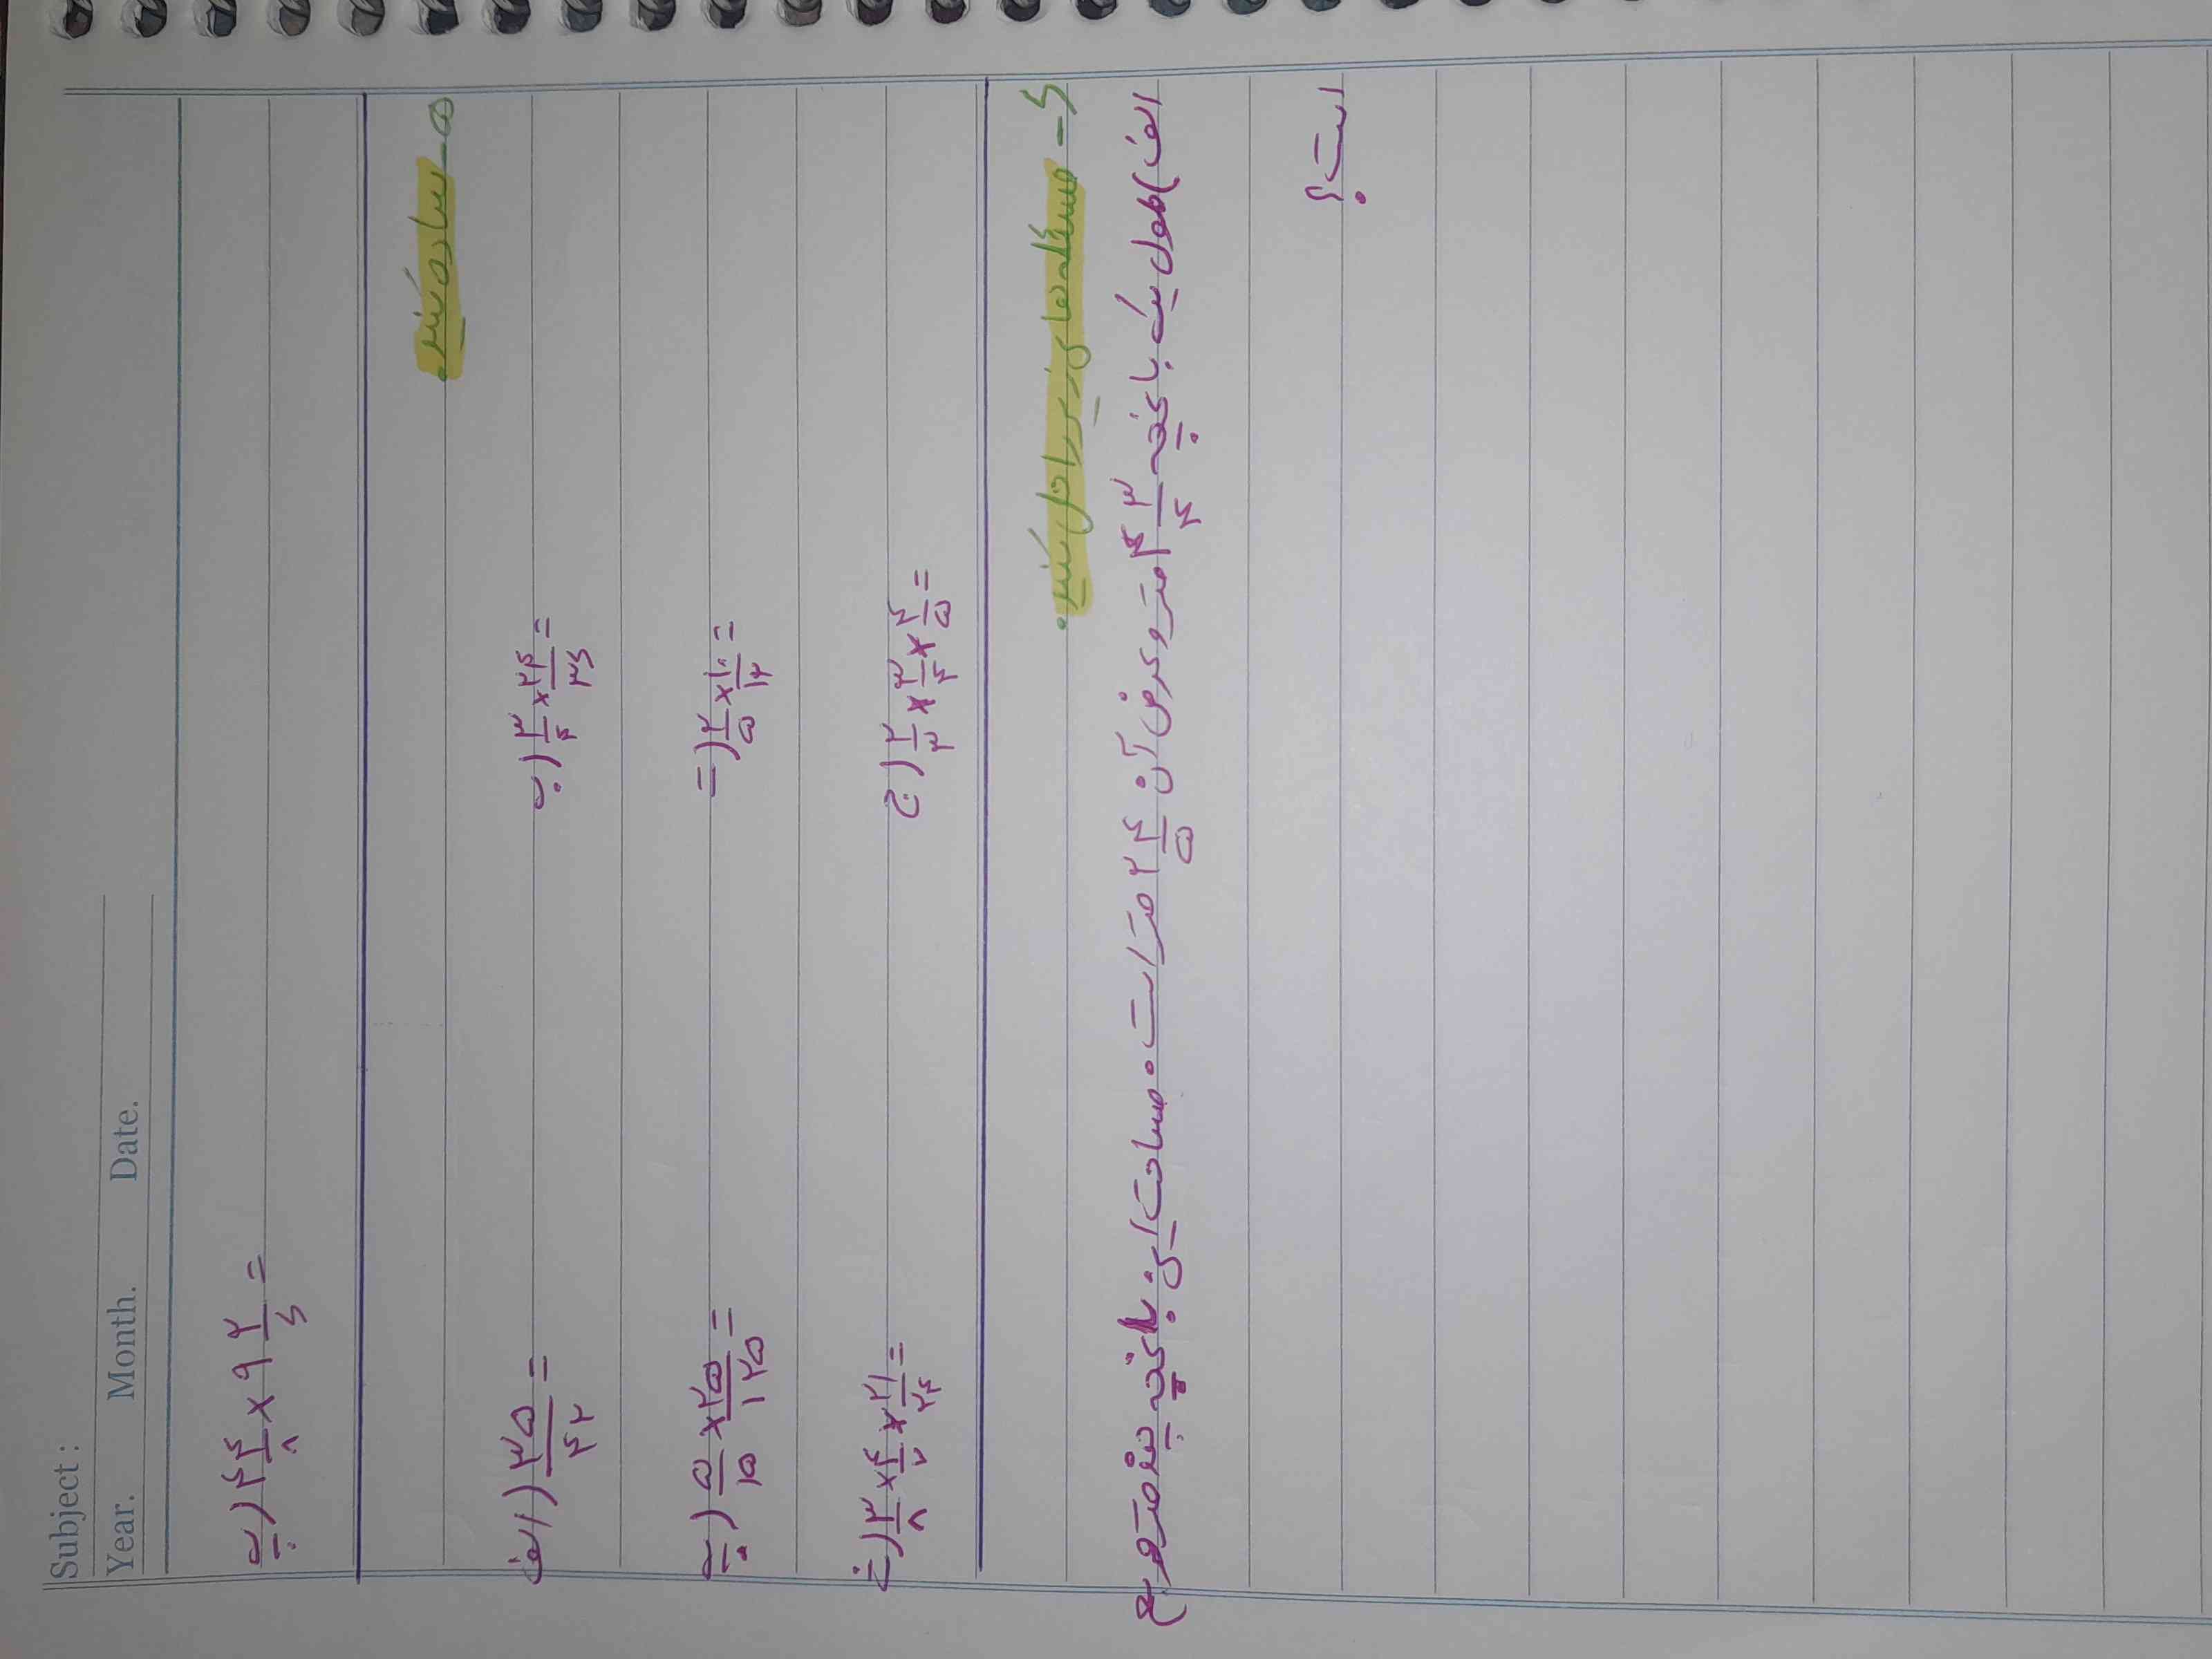 Subject :
Year. Month. Date.
پ) ۴ ۴/۸ × ۹ ۲/۶ =
۵- ساده کنید.
الف) ۳۵/۴۲ = ب) ۳/۴ × ۲۴/۳۶ =
پ) ۵/۱۵ × ۲۵/۱۲۵ = ت) ۲/۵ × ۱۰/۱۲ =
ث) ۳/۸ × ۴/۷ × ۲۱/۲۴ = ج) ۲/۳ × ۳/۴ × ۴/۵ =
۶- مسئله های زیر را حل کنید.
الف) طول یک باغچه ۴ ۳/۴ متر و عرض آن ۲ ۴/۵ متر است. مساحت این باغچه چند متر مربع
است؟